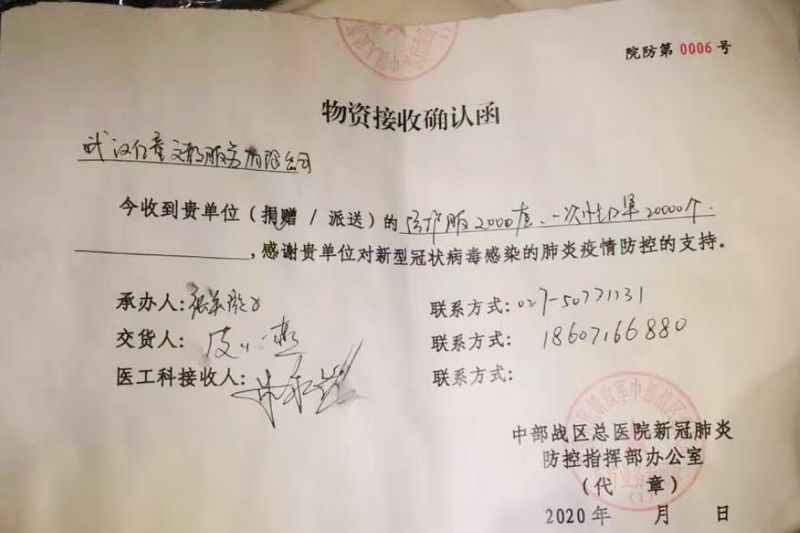 院防第 0006 号
物资接收确认函
武汉亿童文教服务有限公司
今收到贵单位（捐赠 / 派送）的 防护服2000套、一次性口罩20000个
，感谢贵单位对新型冠状病毒感染的肺炎疫情防控的支持。
承办人： 联系方式：027-50771131
交货人： 联系方式：18607166880
医工科接收人： 联系方式：
中部战区总医院新冠肺炎
防控指挥部办公室
（代 章）
2020 年 月 日